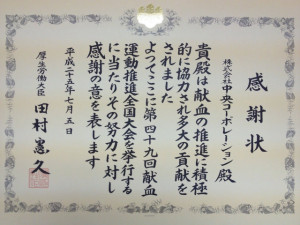 感謝状
株式会社中央コーポレーション殿
貴殿は献血の推進に積極
的に協力され多大の貢献を
されました
よってここに第四十九回献血
運動推進全国大会を挙行する
に当たりその努力に対し
感謝の意を表します
平成二十五年七月五日
厚生労働大臣 田村憲久